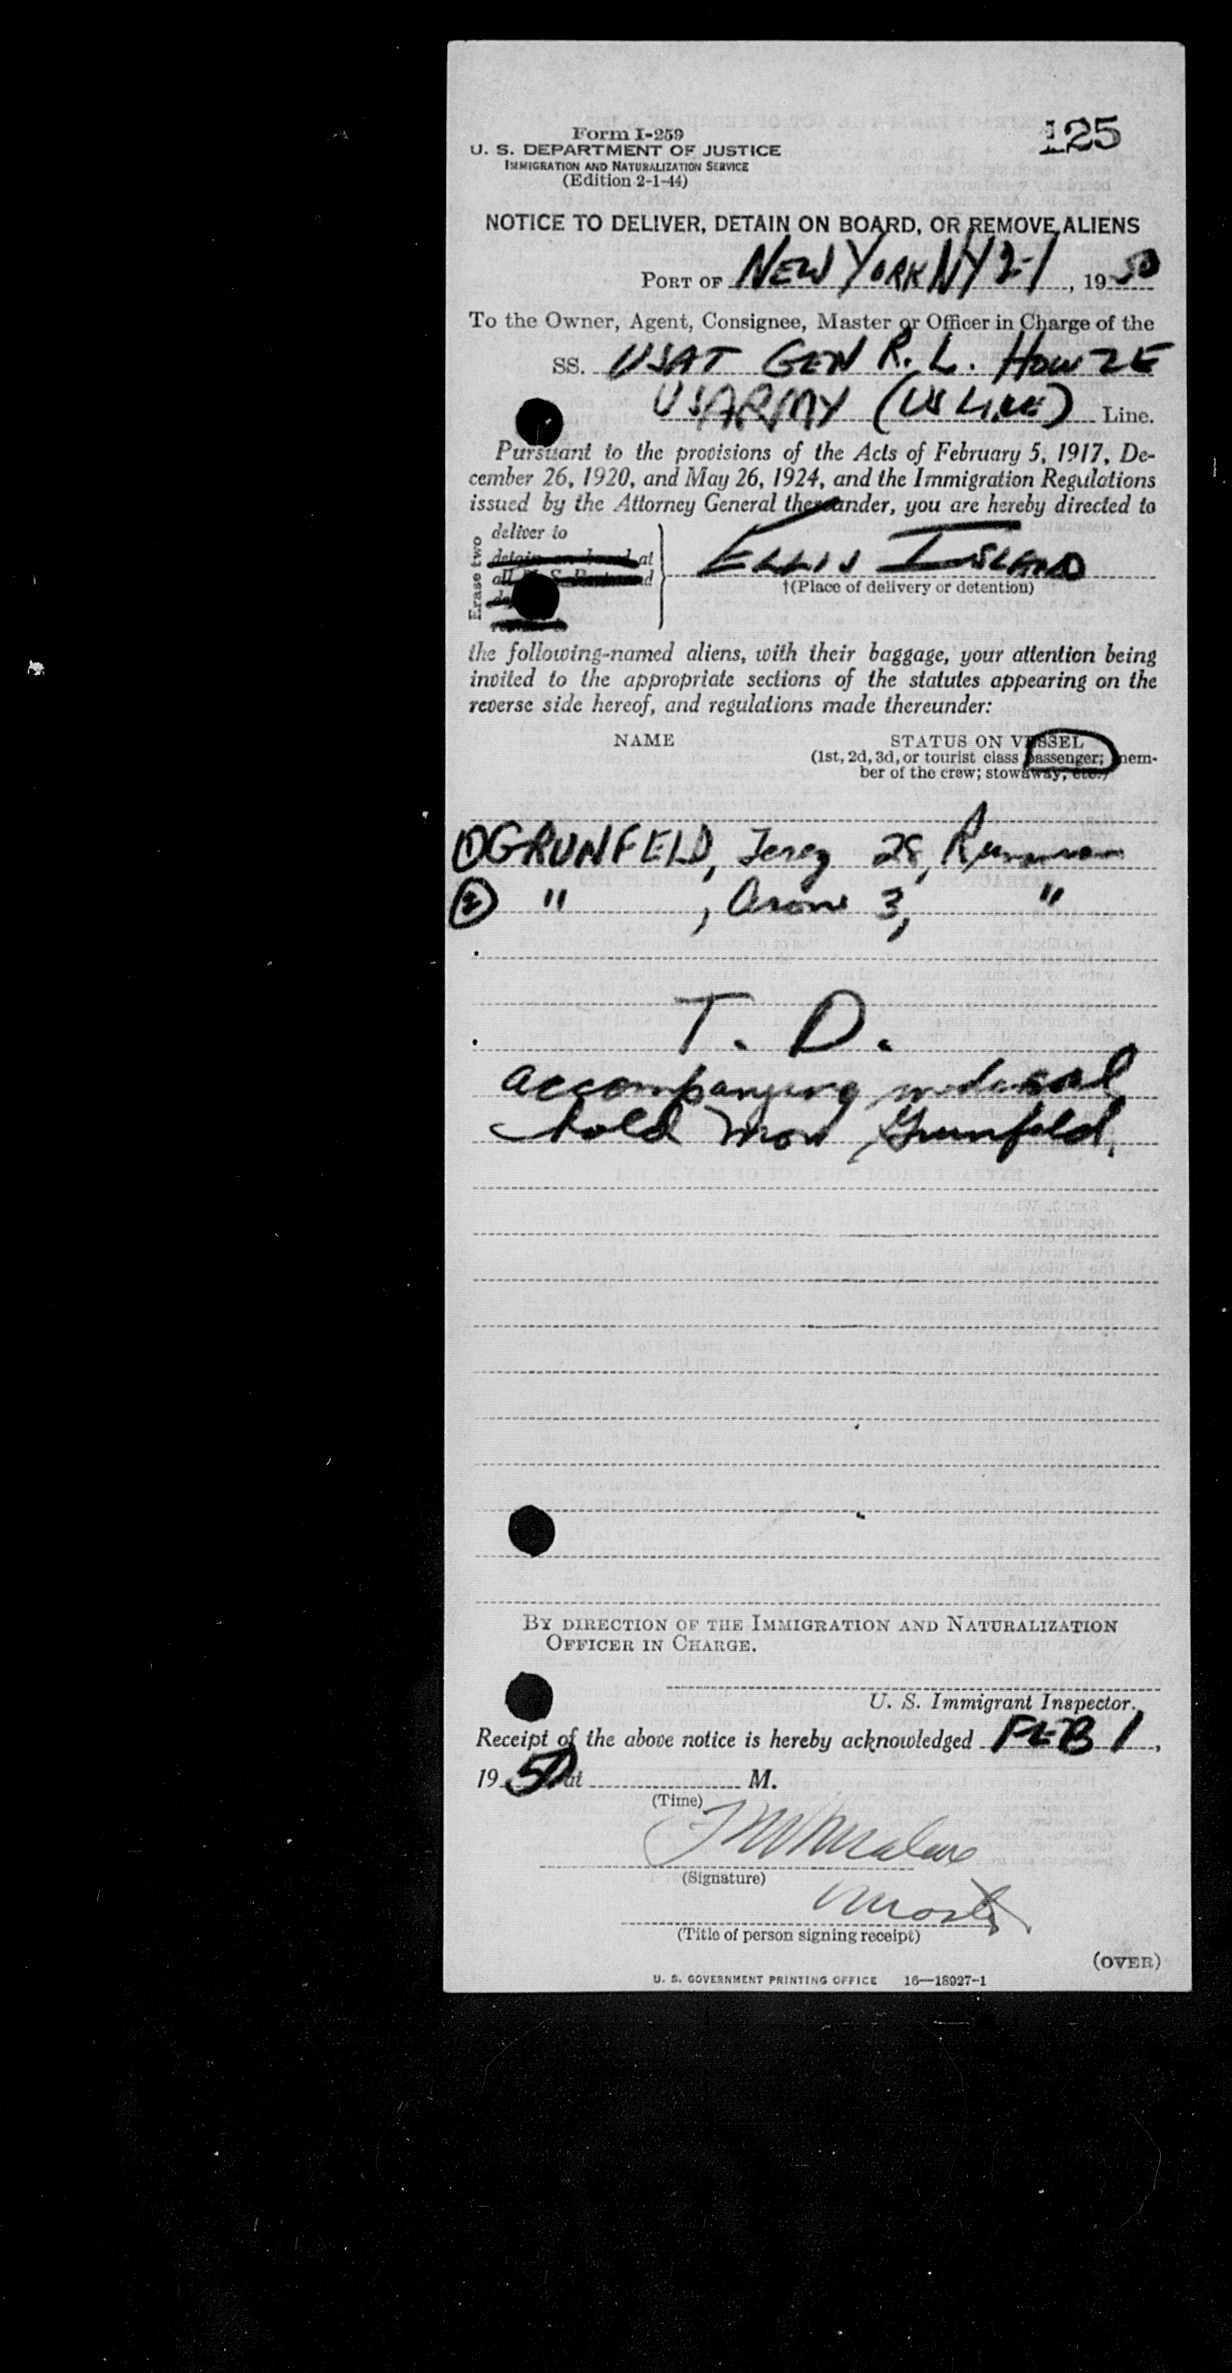 Form I-259
125
U. S. DEPARTMENT OF JUSTICE
IMMIGRATION AND NATURALIZATION SERVICE
(Edition 2-1-44)
NOTICE TO DELIVER, DETAIN ON BOARD, OR REMOVE ALIENS
PORT OF NEW YORK NY 2-1, 1950
To the Owner, Agent, Consignee, Master or Officer in Charge of the
SS. USAT GEN R. L. HOWZE
US ARMY (US LINE) Line.
Pursuant to the provisions of the Acts of February 5, 1917, De-
cember 26, 1920, and May 26, 1924, and the Immigration Regulations
issued by the Attorney General thereunder, you are hereby directed to
Erase two
deliver to
detain on board at
ELLIS ISLAND
†(Place of delivery or detention)
the following-named aliens, with their baggage, your attention being
invited to the appropriate sections of the statutes appearing on the
reverse side hereof, and regulations made thereunder:
NAME STATUS ON VESSEL
(1st, 2d, 3d, or tourist class passenger; mem-
ber of the crew; stowaway, etc.)
① GRUNFELD, 28,
② " , 3, "
T. D.
accompanying medical
hold Grunfeld.
BY DIRECTION OF THE IMMIGRATION AND NATURALIZATION
OFFICER IN CHARGE.
U. S. Immigrant Inspector.
Receipt of the above notice is hereby acknowledged FEB 1,
1950 at M.
(Time)
(Signature)
(Title of person signing receipt)
(OVER)
U. S. GOVERNMENT PRINTING OFFICE 16—18927-1